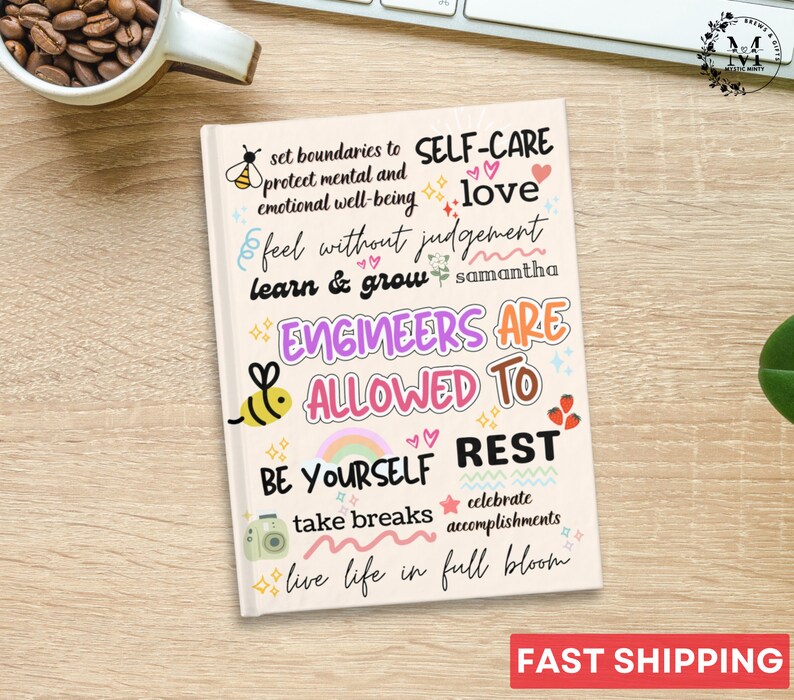 BREWS & GIFTS
M
MYSTIC MINTY
set boundaries to
protect mental and
emotional well-being
SELF-CARE
love
feel without judgement
learn & grow
samantha
ENGINEERS ARE
ALLOWED TO
BE YOURSELF
REST
take breaks
celebrate
accomplishments
live life in full bloom
FAST SHIPPING